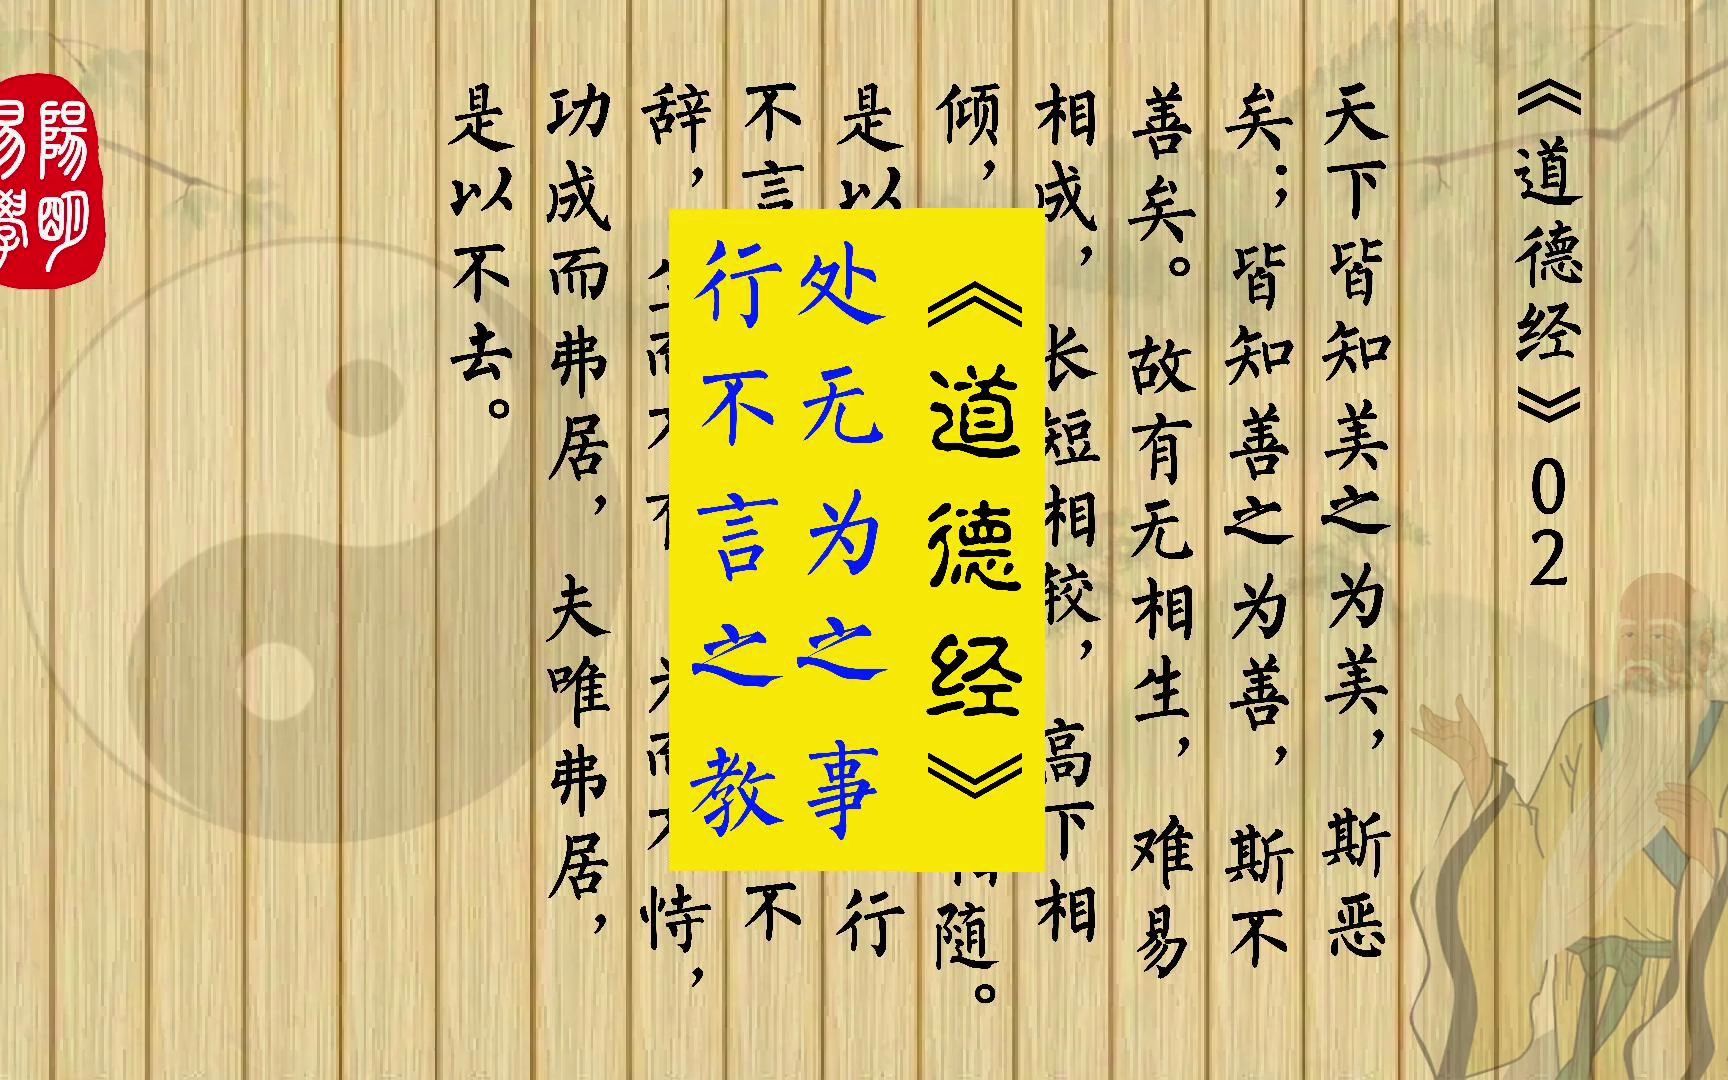 《道德经》02
天下皆知美之为美，斯恶
矣；皆知善之为善，斯不
善矣。故有无相生，难易
相成，长短相较，高下相
倾，随。
是以行
不言不
辞，恃，
功成而弗居，夫唯弗居，
是以不去。
《道德经》
处无为之事
行不言之教
陽明
易學